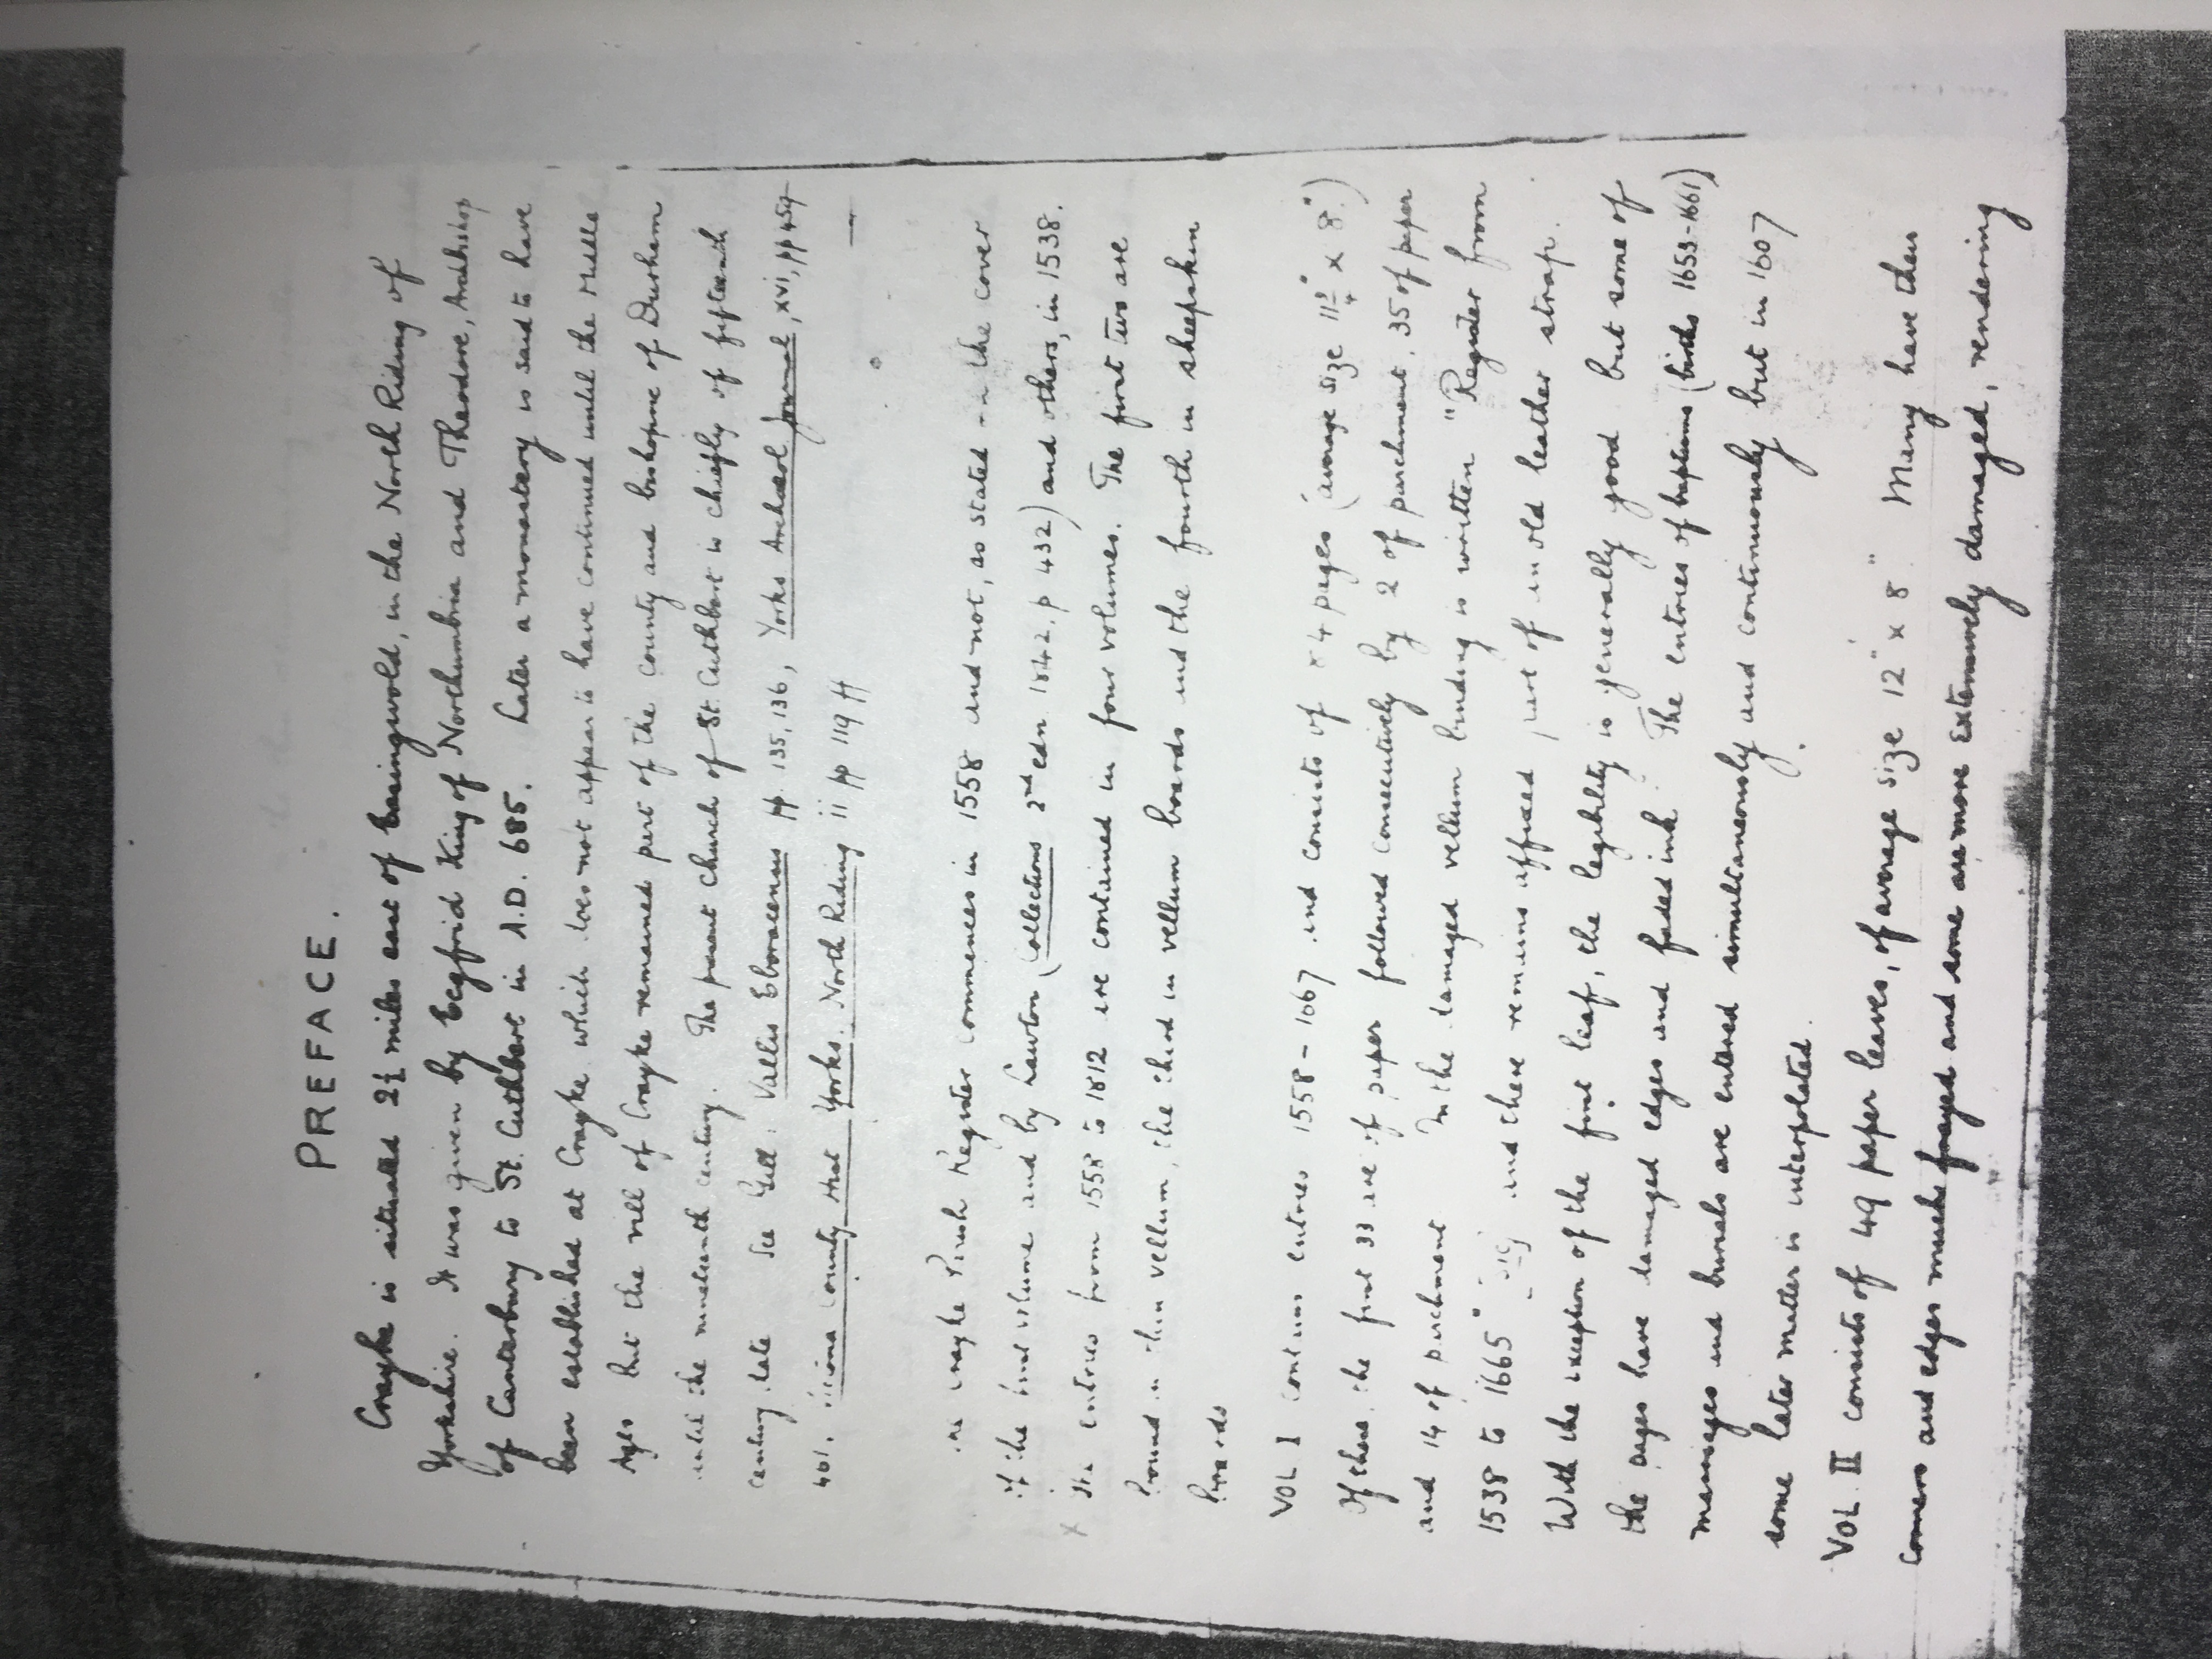 PREFACE.
Crayke is situated 2½ miles east of Easingwold, in the North Riding of
Yorkshire. It was given by Ecgfrid King of Northumbria and Theodore, Archbishop
of Canterbury to St. Cuthbert in A.D. 685. Later a monastery is said to have
been established at Crayke which does not appear to have continued until the Middle
Ages but the vill of Crayke remained part of the County and bishopric of Durham
until the nineteenth century. The present church of St. Cuthbert is chiefly of fifteenth
century date See Gill: Vallis Eboracensis pp. 135, 136, Yorks Archaeol Journal, xvi, pp 459-
461. Victoria County Hist Yorks. North Riding ii pp 119 ff
The Crayke Parish Register commences in 1558 and not, as stated on the cover
of the first volume and by Lawton (Collections 2nd edn 1842. p 432) and others, in 1538.
The entries from 1558 to 1812 are contained in four volumes. The first two are
bound in thin vellum, the third in vellum boards and the fourth in sheepskin
boards
VOL I contains entries 1558-1667 and consists of 84 pages (average size 11¾" x 8".)
Of these the first 33 are of paper followed consecutively by 2 of parchment, 35 of paper
and 14 of parchment On the damaged vellum binding is written "Register from
1538 to 1665" [sic] and there remains affixed part of an old leather strap.
With the exception of the first leaf, the legibility is generally good but some of
the pages have damaged edges and faded ink. The entries of baptisms (births 1653-1661)
marriages and burials are entered simultaneously and continuously but in 1607
some later matter is interpolated.
VOL. II consists of 49 paper leaves, of average size 12" x 8" Many have their
corners and edges much frayed and some are more extensively damaged, rendering